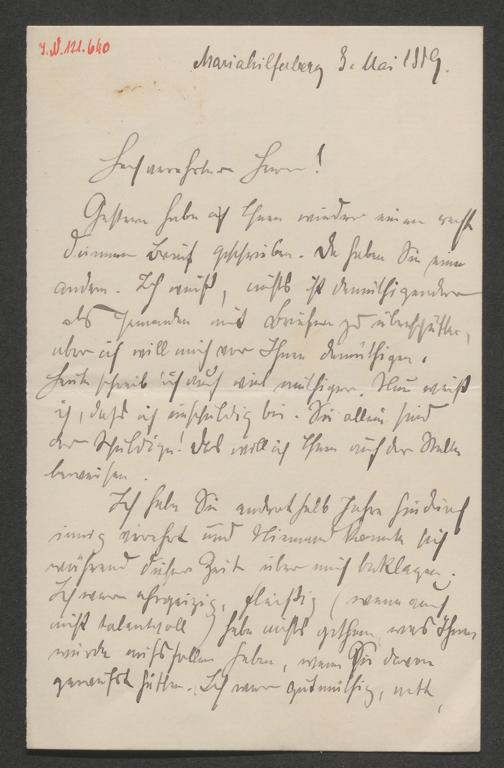 J.N. 121.640
Mariahilferberg 3. Mai 1889.
Hochverehrter Herr!
Gestern habe ich Ihnen wieder einen recht
dummen Brief geschrieben. Da haben Sie einen
andern. Ich weiß, nichts ist demüthigender
als Jemanden mit Briefen zu überschütten,
aber ich will mich vor Ihnen demüthigen.
Heute schreib' ich auch viel muthiger. Nun weiß
ich, daß ich unschuldig bin. Sie allein sind
der Schuldige! Das will ich Ihnen auf der Stelle
beweisen.
Ich habe Sie anderthalb Jahre hindurch
innig verehrt und Niemand konnte sich
während dieser Zeit über mich beklagen.
Ich war ehrgeizig, fleißig (wenn auch
nicht talentvoll) habe nichts gethan was Ihnen
würde mißfallen haben, wenn Sie davon
gewußt hätten. Ich war gutmüthig, nett,